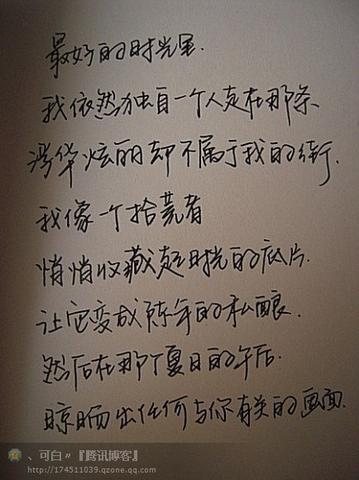 最好的时光里.
我依然独自一个人走在那条
浮华炫丽却不属于我的街.
我像一个拾荒者
悄悄收藏起时光的底片.
让它变成陈年的私酿.
然后在那个夏日的午后.
晾晒出任何与你有关的画面.
、可白〃『腾讯博客』
http://174511039.qzone.qq.com